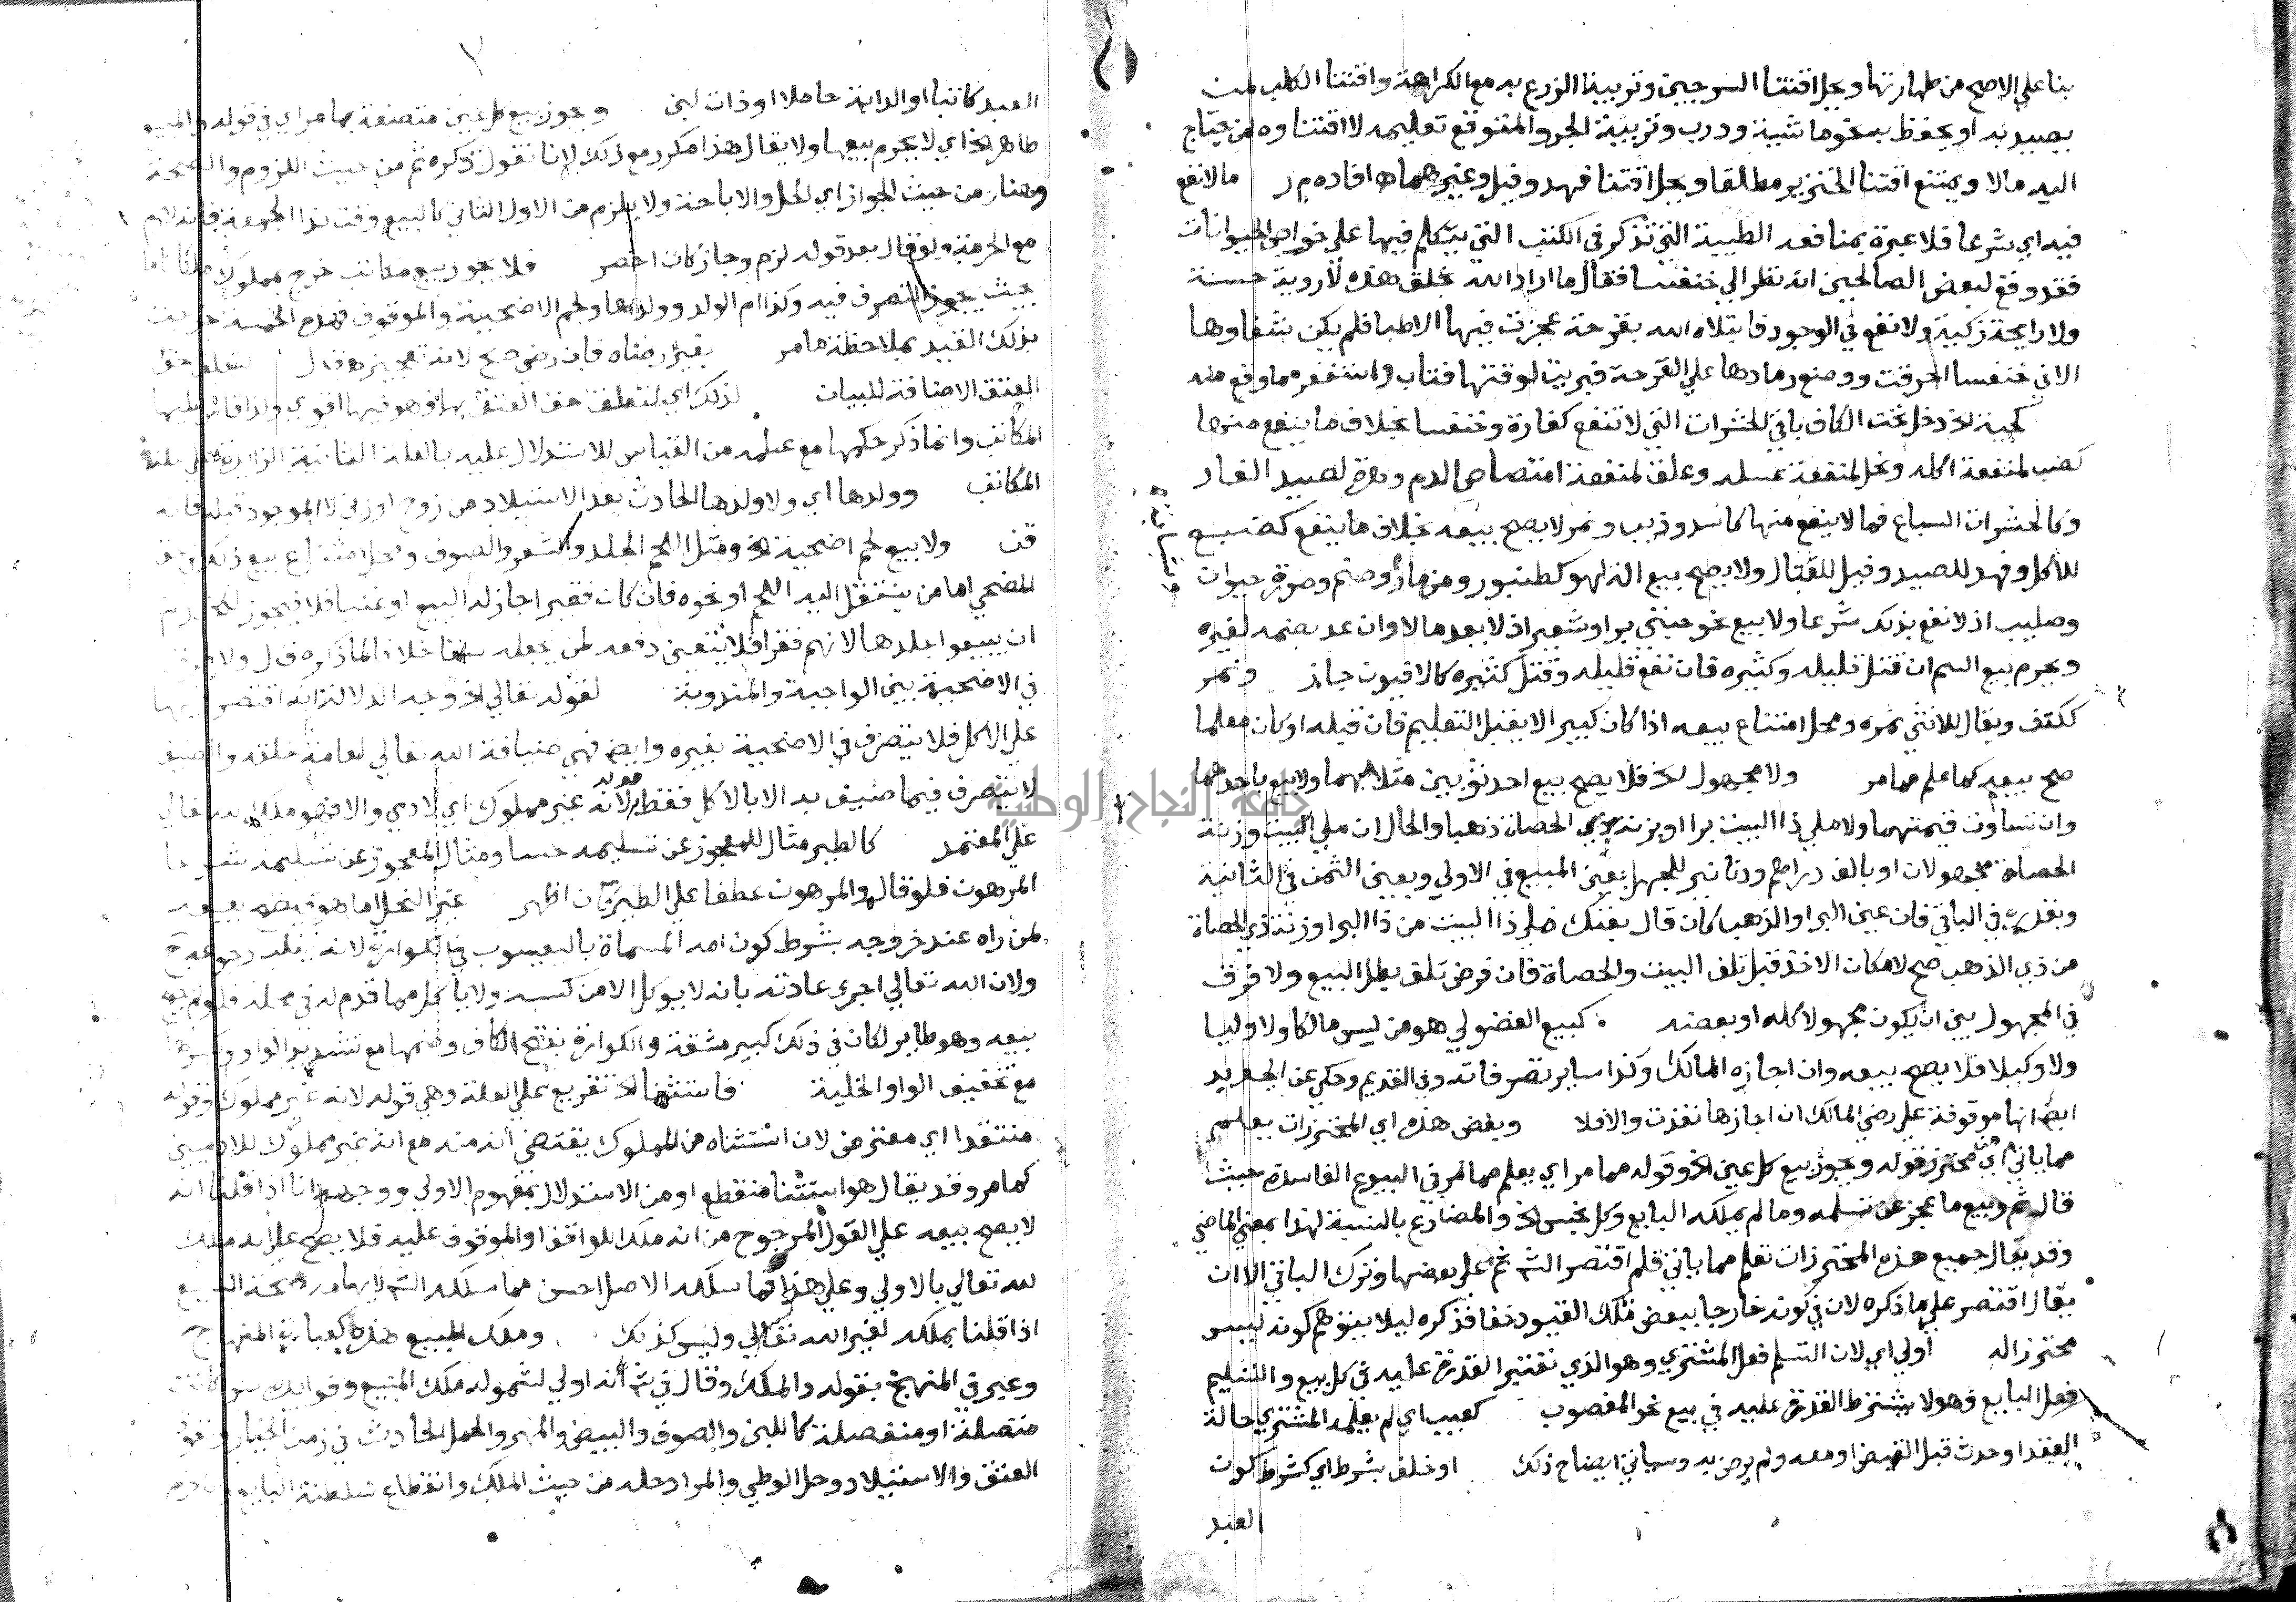 بنا علي الاصح من طهارتها ويحل اقتنا السرجين وتربية الزرع به مع الكراهة واقتنا الكلب لمن
يصيد به او يحفظ به نحو ماشية ودرب وتربية الجرو المتوقع تعليمه لا اقتناوه لمن يحتاج
اليه مالا ويمتنع اقتنا الخنزير مطلقا ويحل اقتنا فهد وفيل وغيرهما اه افاده م ر مالا نفع
فيه اي شرعا فلا عبرة بمنافعه الطبية التي تذكر في الكتب التي يتكلم فيها علي خواص الحيوانات
فقد وقع لبعض الصالحين انه نظر الي خنفسا فقال ما اراد الله بخلق هذه لا روية حسنة
ولا رايحة زكية ولا نفع في الوجود فابتلاه الله بقرحة عجزت فيها الاطبا فلم يكن شفاوها
الا في خنفسا احرقت ووضع رمادها علي القرحة فبريت لوقتها فتاب واستغفر مما وقع منه
كحية الخ دخل تحت الكاف باقي الحشرات التي لا تنفع كفارة وخنفسا بخلاف ما ينفع منها
كضب لمنفعة اكله ونحل لمنفعة عسله وعلق لمنفعة امتصاص الدم وهرة لصيد الفار
وكالحشرات السباع فما لا ينفع منها كاسد وذيب ونمر لا يصح بيعه بخلاف ما ينفع كضبع
للاكل وفهد للصيد وفيل للقتال ولا يصح بيع الة لهو كطنبور ومزمار وصنم وصورة حيوان
وصليب اذ لا نفع بذلك شرعا ولا بيع نحو حبتي بر او شعير اذ لا يعد مالا وان عد بضمه لغيره
ويحرم بيع السم ان قتل قليله وكثيره فان نفع قليله وقتل كثيره كالافيون جاز ونمر
ككتف ويقال للانثي نمرة ومحل امتناع بيعه اذا كان كبيرا لا يقبل التعليم فان قبله او كان معلما
صح بيعه كما علم مما مر ولا مجهول الخ فلا يصح بيع احد ثوبين مثلا مبهما ولا بيع باحدهما
وان تساوت قيمتهما ولا ملي ذا البيت برا او بزنة ذي الحصاة ذهبا والحال ان ملي البيت وزنة
الحصاة مجهولان او بالف دراهم ودنانير للجهل بعين المبيع في الاولي وبعين الثمن في الثانية
وبقدره في الباقي فان عين البر او الذهب كان قال بعتك ملي ذا البيت من ذا البر او زنة ذي الحصاة
من ذي الذهب صح لامكان الاخذ قبل تلف البيت والحصاة فان فرض تلف بطل البيع ولا فرق
في المجهول بين ان يكون مجهولا كله او بعضه كبيع الفضولي هو من ليس مالكا ولا وليا
ولا وكيلا فلا يصح بيعه وان اجازه المالك وكذا ساير تصرفاته وفي القديم وحكي عن الجديد
ايضا انها موقوفة علي رضي المالك ان اجازها نفذت والا فلا وبعض هذه اي المحترزات يعلم
مما ياتي اي من محترز قوله ويجوز بيع كل عين الخ وقوله مما مر اي يعلم مما مر في البيوع الفاسدة حيث
قال ثم وبيع ما عجز عن تسلمه وما لم يملكه البايع وكل نجس الخ والمضارع بالنسبة لهذا بمعني الماضي
وقد يقال جميع هذه المحترزات تعلم مما ياتي فلم اقتصر الش ثم علي بعضها وترك الباقي الا ان
يقال اقتصر علي ما ذكره لان في كونه خارجا ببعض تلك القيود خفا فذكره ليلا يتوهم كونه ليس
محترزا له اولي اي لان التسلم فعل المشتري وهو الذي تعتبر القدرة عليه في كل بيع والتسليم
فعل البايع وهو لا يشترط القدرة عليه في بيع نحو المغصوب كعيب اي لم يعلمه المشتري حالة
العقد او حدث قبل القبض او معه ولم يرض به وسياتي ايضاح ذلك او خلف بشرط اي كشرط كون
العبد
جامعة النجاح الوطنية
٧
العبد كاتبا او الدابة حاملا او ذات لبن ويجوز بيع كل عين متصفة بما مر اي في قوله والمبيع
طاهر الخ اي لا يحرم بيعها ولا يقال هذا مكرر مع ذلك لانا نقول ذكره ثم من حيث اللزوم والصحة
وهنا من حيث الجواز اي الحل والاباحة ولا يلزم من الاول الثاني كالبيع وقت ندا الجمعة فانه لازم
مع الحرمة ولو قال بعد قوله لزم وجاز كان اخصر فلا يجوز بيع مكاتب خرج بمملوك ملكا تاما
بحيث يجوز التصرف فيه وكذا ام الولد وولدها ولحم الاضحية والموقوف فهذه الخمسة خرجت
بذلك القيد بملاحظة ما مر بغير رضاه فان رضي صح لانه تعجيز لتعلق حق
العتق الاضافة للبيان لذلك اي لتعلق حق العتق بها وهو فيها اقوي ولذا قاس عليها
المكاتب وانما ذكر حكمها مع علمه من القياس للاستدلال عليه بالعلة الثانية الزايدة علي علة
المكاتب وولدها اي ولا ولدها الحادث بعد الاستيلاد من زوج او زني لا الموجود قبله فانه
قن ولا بيع لحم اضحية الخ ومثل اللحم الجلد والشعر والصوف ومحل امتناع بيع ذلك في حق
المضحي اما من ينتقل اليه اللحم او نحوه فان كان فقيرا جاز له البيع او غنيا فلا فيجوز
ان يبيعوا جلدها لانهم فقرا فلا يتعين دفعه لمن يجعله سقا خلافا لما ذكره ق ل ولا فرق
في الاضحية بين الواجبة والمندوبة لقوله تعالي الخ وجه الدلالة انه اقتصر فيها
علي الاكل فلا يتصرف في الاضحية بغيره وايضا فهي ضيافة الله تعالي لعامة خلقه والضيف
لا يتصرف فيما ضيف به الا بالاكل فقط لانه غير مملوك اي لادمي والا فهو ملك لله تعالي
علي المعتمد كالطير مثال للمعجوز عن تسليمه حسا ومثال المعجوز عن تسليمه شرعا
المرهون فلو قال والمرهون عطفا علي الطير كان اظهر غير النحل اما هو فيصح بيعه
لمن راه عند خروجه بشرط كون امه المسماة باليعسوب في الكوارة لانه يغلب رجوعه ح
ولان الله تعالي اجري عادته بانه لا يوكل الا من كسبه ولا ياكل مما قدم له في محله فلو لم يصح
بيعه وهو طاير لكان في ذلك كبير مشقة والكوارة بفتح الكاف وضمها مع تشديد الواو وبكسرها
مع تخفيف الواو الخلية فاستثنا الخ تفريع علي العلة وهي قوله لانه غير مملوك وقوله
منتقدا اي معترض لان استثناه من المملوك يقتضي انه منه مع انه غير مملوك للادميين
كما مر وقد يقال هو استثنا منقطع او من الاستدلال بمفهوم الاولي ووجهه انا اذا قلنا انه
لا يصح بيعه علي القول المرجوح من انه ملك للواقف او الموقوف عليه فلا يصح علي انه ملك
لله تعالي بالاولي وعلي هذا فما سلكه الاصل احسن مما سلكه الش لايهامه صحة البيع
اذا قلنا بملكه لغير الله تعالي وليس كذلك وملك المبيع هذه كعبارة المنهاج
وعبر في المنهج بقوله والملك وقال في ش انه اولي لشموله ملك المبيع وفوايده سوا كانت
متصلة او منفصلة كاللبن والصوف والبيض والمهر والحمل الحادث في زمن الخيار ونفوذ
العتق والاستيلاد وحل الوطي والمراد حله من حيث الملك وانقطاع سلطنة البايع